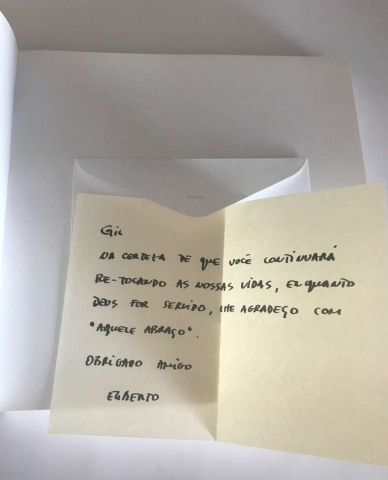 Gil
NA CERTEZA DE QUE VOCÊ CONTINUARÁ
RE-TOCANDO AS NOSSAS VIDAS, ENQUANTO
DEUS FOR SERVIDO, LHE AGRADEÇO COM
"AQUELE ABRAÇO".
OBRIGADO AMIGO
EGBERTO